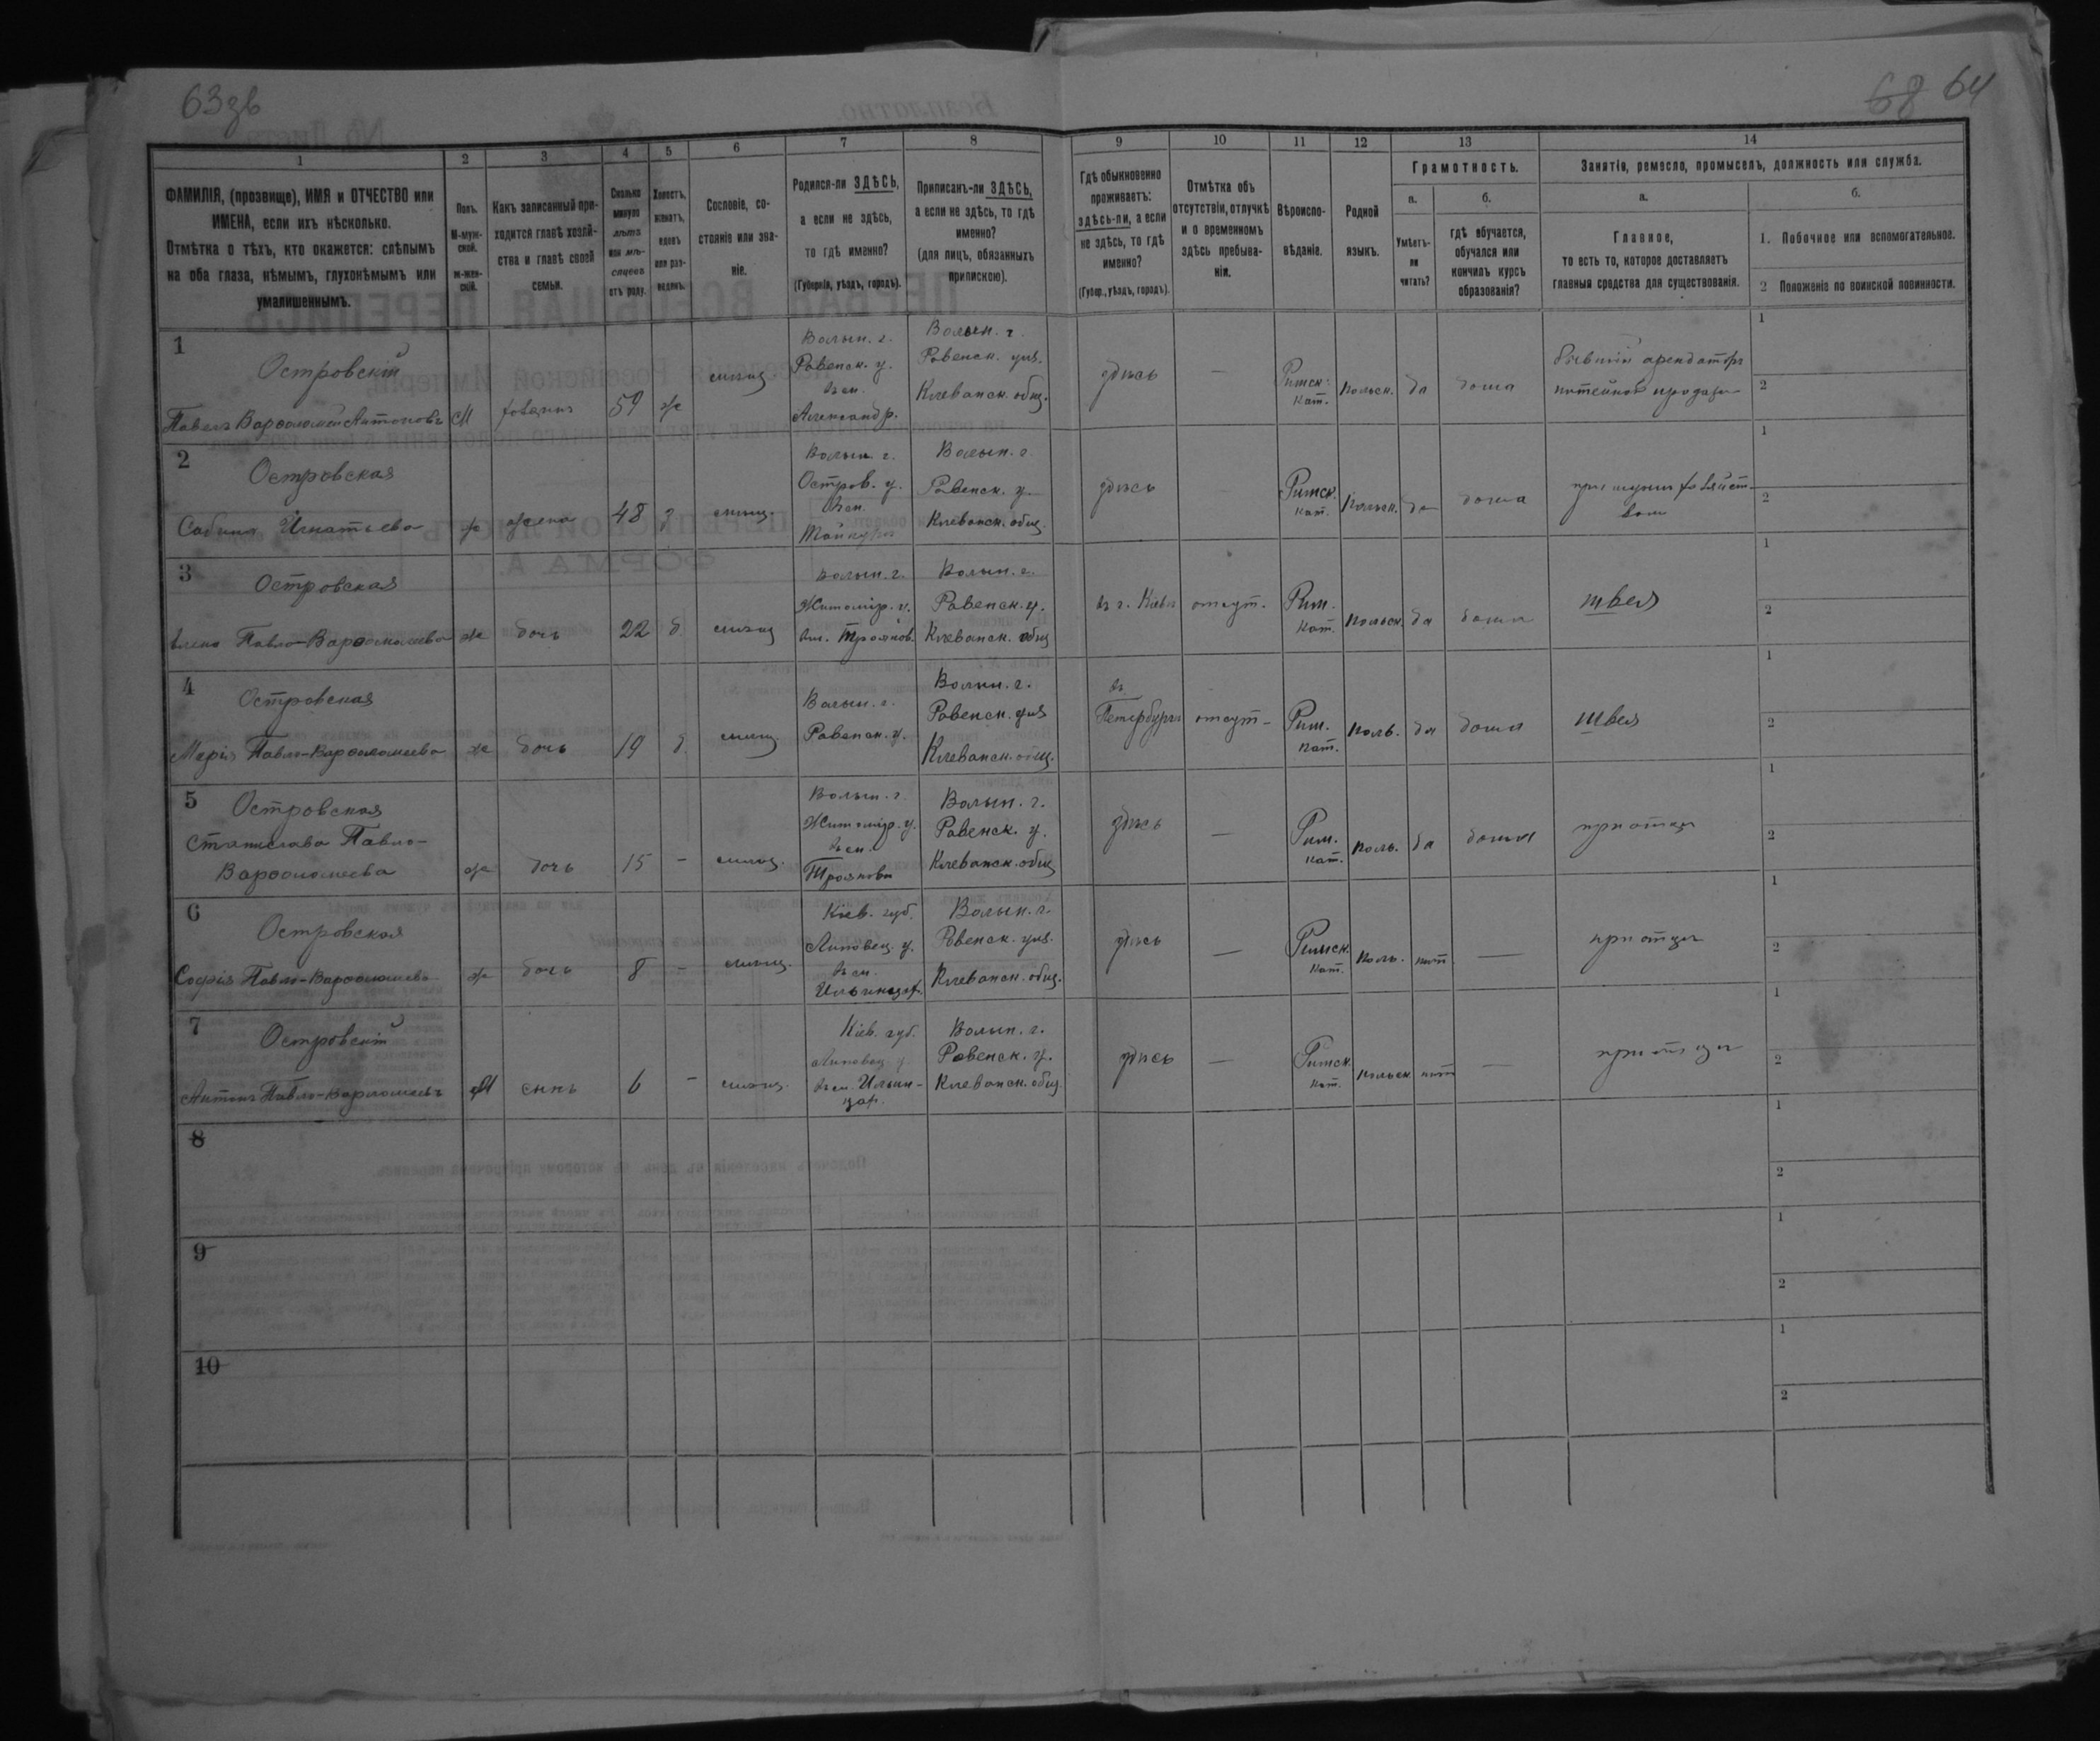 63зв
68 64
1 2 3 4 5 6 7 8 9 10 11 12 13 14
ФАМИЛІЯ, (прозвище), ИМЯ и ОТЧЕСТВО или
ИМЕНА, если ихъ нѣсколько.
Отмѣтка о тѣхъ, кто окажется: слѣпымъ
на оба глаза, нѣмымъ, глухонѣмымъ или
умалишеннымъ.
Полъ.
М-муж-
ской.
ж-жен-
скій.
Какъ записанный при-
ходится главѣ хозяй-
ства и главѣ своей
семьи.
Сколько
минуло
лѣтъ
или мѣ-
сяцевъ
отъ роду.
Холостъ,
женатъ,
вдовъ
или раз-
веденъ.
Сословіе, со-
стояніе или зва-
ніе.
Родился-ли ЗДѢСЬ,
а если не здѣсь,
то гдѣ именно?
(Губернія, уѣздъ, городъ).
Приписанъ-ли ЗДѢСЬ,
а если не здѣсь, то гдѣ
именно?
(для лицъ, обязанныхъ
припискою).
Гдѣ обыкновенно
проживаетъ:
здѣсь-ли, а если
не здѣсь, то гдѣ
именно?
(Губер., уѣздъ, городъ).
Отмѣтка объ
отсутствіи, отлучкѣ
и о временномъ
здѣсь пребыва-
ніи.
Вѣроиспо-
вѣданіе.
Родной
языкъ.
Грамотность.
а.
Умѣетъ-
ли
читать?
б.
гдѣ обучается,
обучался или
кончилъ курсъ
образованія?
Занятія, ремесло, промыселъ, должность или служба.
а.
Главное,
то есть то, которое доставляетъ
главныя средства для существованія.
б.
1. Побочное или вспомогательное.
2 Положеніе по воинской повинности.
1
Островскій
Павелъ Варѳоломей Антоновъ
М
хозяинъ
59
ж
мѣщ
Волын. г.
Ровенск. у.
въ с.
Александр.
Волын. г.
Ровенск. уѣз.
Клеванск. общ.
здѣсь
—
Римск.
кат.
польск.
да
дома
бывшій арендаторъ
питейной продажи
1
2
2
Островская
Сабина Игнатьева
ж
жена
48
з
мѣщ.
Волын. г.
Остров. у.
Волын. г.
Ровенск. у.
Клеванск. общ.
здѣсь
—
Римск.
кат.
польск.
да
дома
при мужѣ хозяйст-
вомъ
1
2
3
Островская
Павло-Варѳоломеева
ж
дочь
22
д
мѣщ
Волын. г.
Житомір. у.
въ м. Троянов.
Волын. г.
Ровенск. у.
Клеванск. общ
въ г. Кіевѣ
отсут.
Рим.
кат.
польск.
да
дома
швея
1
2
4
Островская
Марія Павло-Варѳоломеева
ж
дочь
19
д.
мѣщ.
Волын. г.
Ровенск. у.
Волын. г.
Ровенск. уѣз
Клеванск. общ.
въ
Петербургѣ
отсут-
Рим.
кат.
поль.
да
дома
швея
1
2
5
Островская
Станислава Павло-
Варѳоломеева
ж
дочь
15
-
мѣщ.
Волын. г.
Житомір. у.
въ м.
Трояновъ
Волын. г.
Ровенск. у.
Клеванск. общ
здѣсь
—
Рим.
кат.
поль.
да
дома
при отцѣ
1
2
6
Островская
Софія Павло-Варѳоломеева
ж
дочь
8
-
мѣщ.
Кіев. губ.
Липовец. у.
въ м.
Ильинцах.
Волын. г.
Ровенск. уѣз.
Клеванск. общ.
здѣсь
—
Римск.
кат.
поль.
нѣт.
—
при отцѣ
1
2
7
Островскій
Антонъ Павло-Варѳоломеевъ
М
сынъ
6
-
мѣщ.
Кіев. губ.
Липовец. у.
въ м. Ильин-
цах.
Волын. г.
Ровенск. у.
Клеванск. общ
здѣсь
—
Римск.
кат.
польск
нѣт
—
при отцѣ
1
2
8
1
2
9
1
2
10
1
2